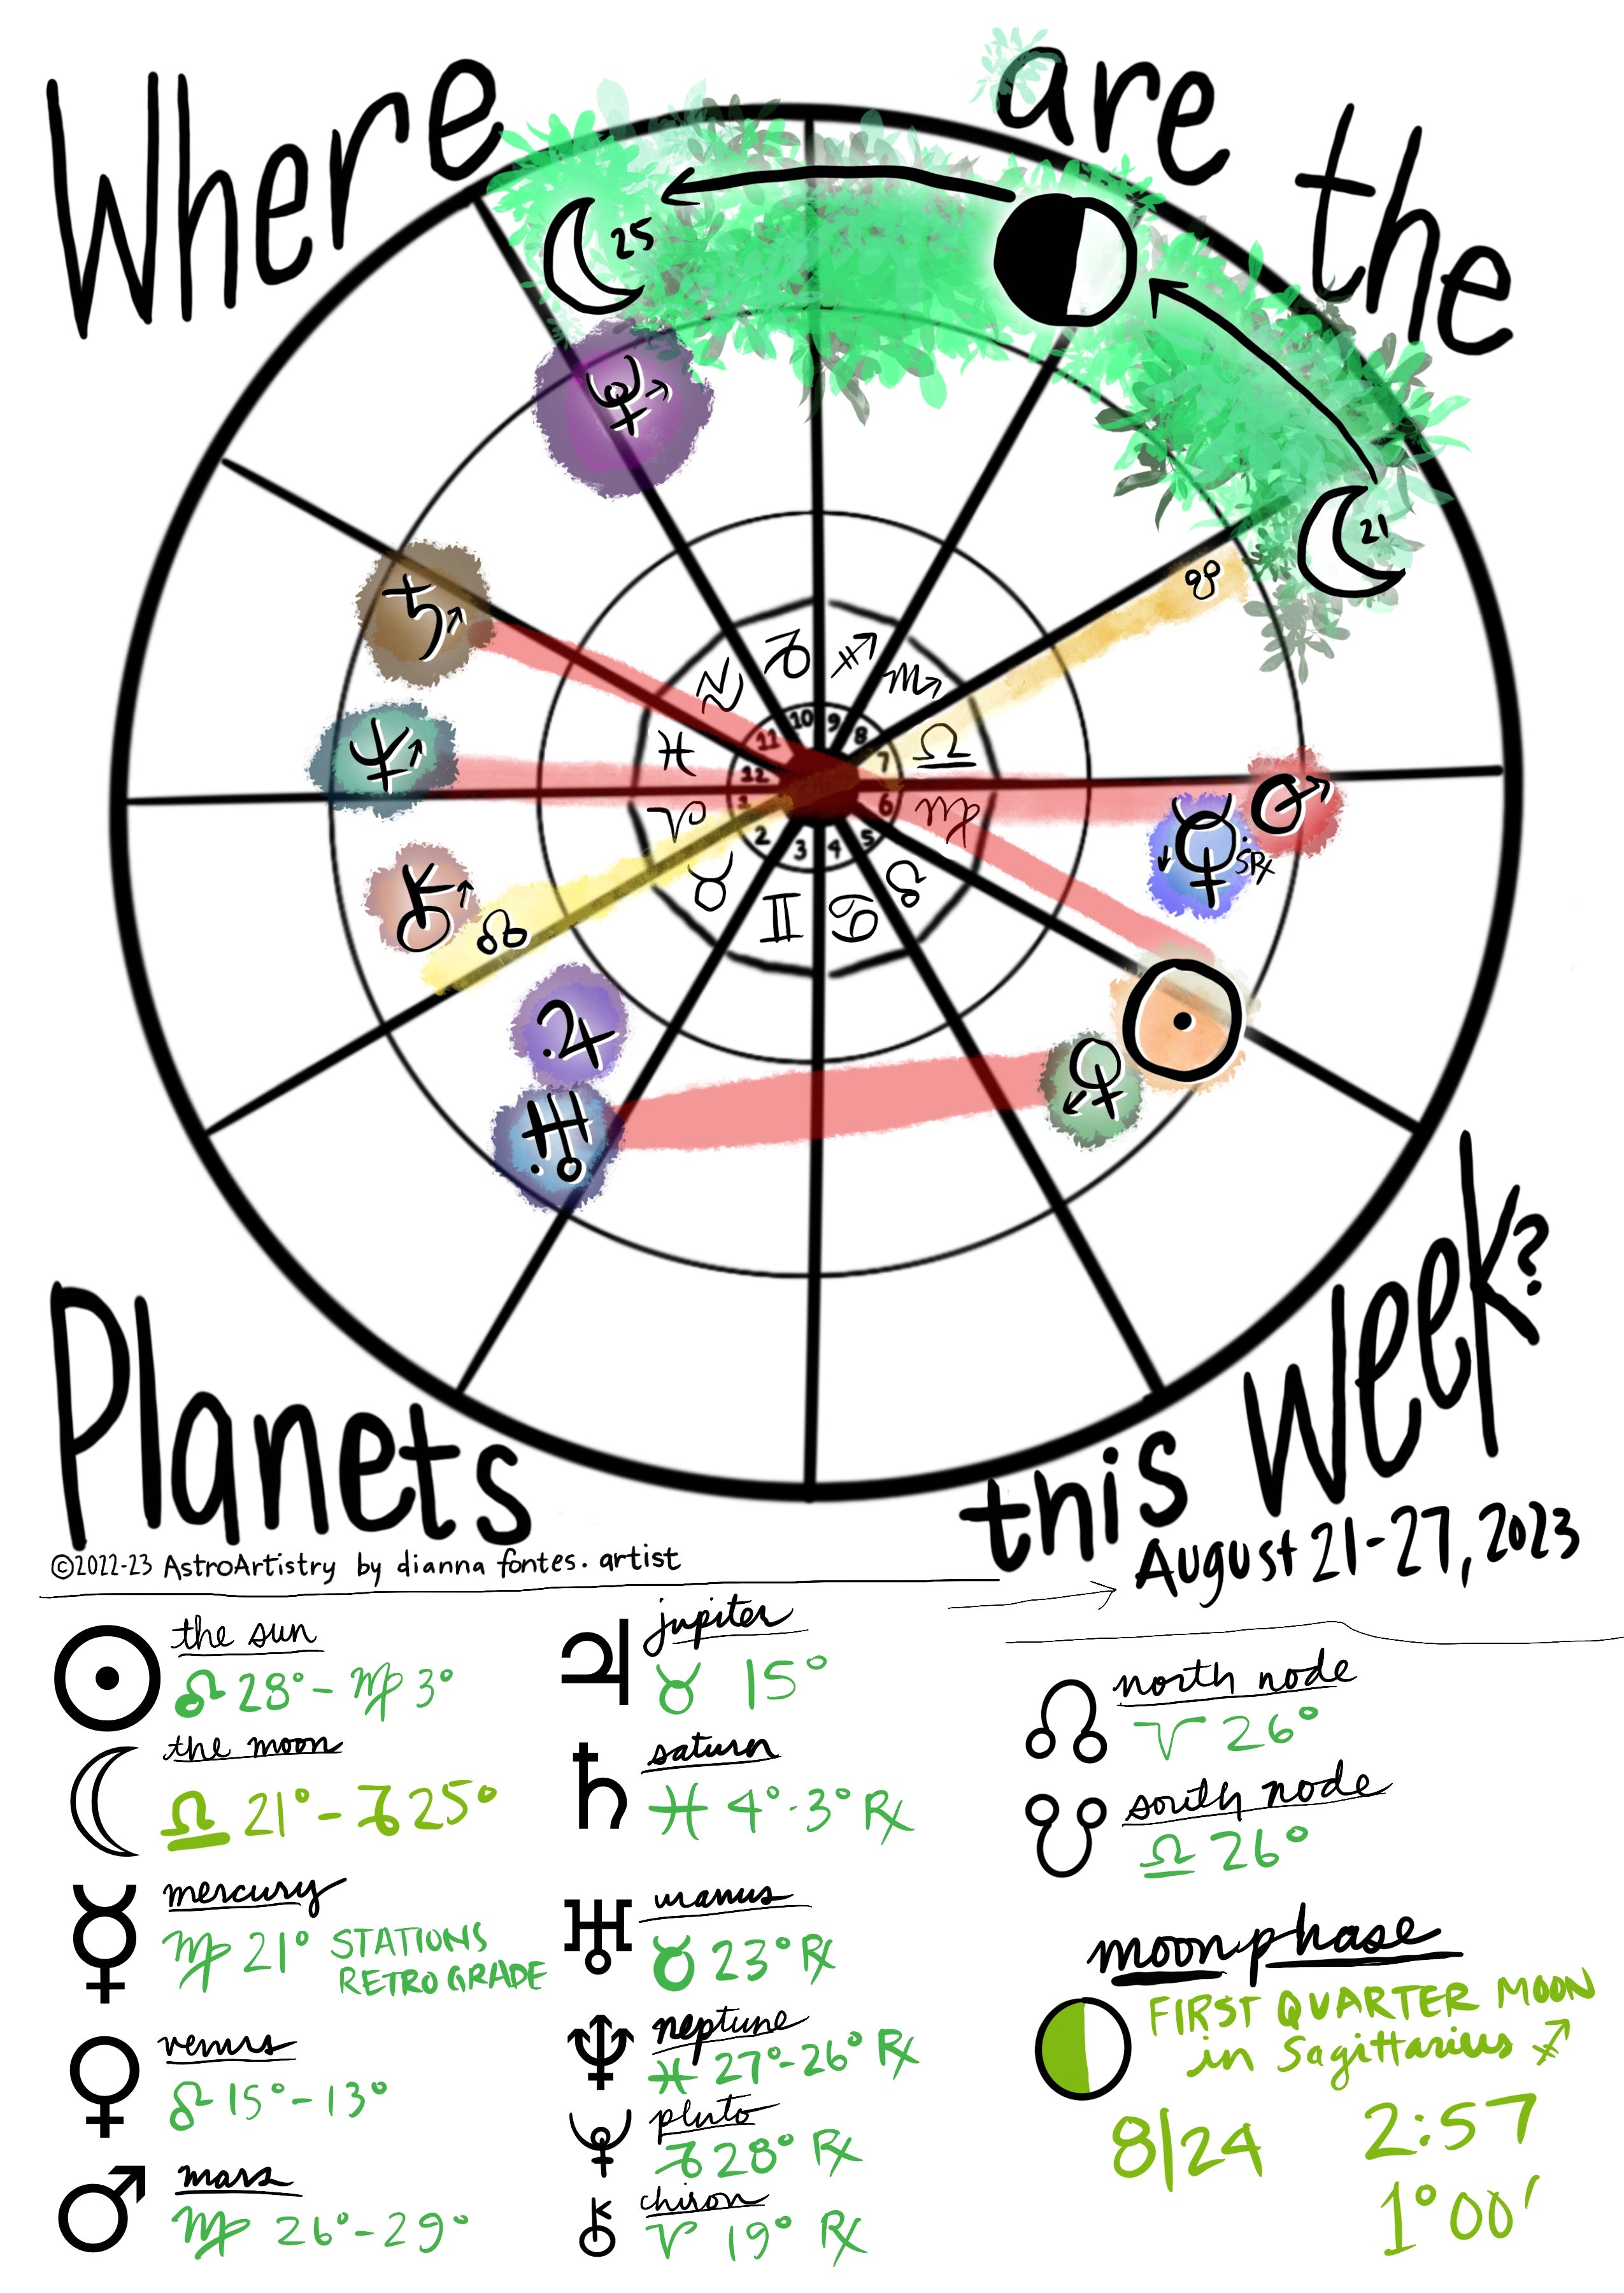 Where are the
25
21
♇→
♄↑
♆↑
⚷↑
☊
♃
♅
☋
♂
☿↓ SRx
☉
♀↙
♒ ♑ ♐ ♏
♓ ♎
♈ ♍
♉ ♊ ♋ ♌
11 10 9 8
12 7
1 6
2 3 4 5
Planets this Week?
August 21-27, 2023
©2022-23 AstroArtistry by dianna fontes.artist
☉ the sun
♌ 28° - ♍ 3°
☾ the moon
♎ 21° - ♑ 25°
☿ mercury
♍ 21° STATIONS
RETROGRADE
♀ venus
♌ 15° - 13°
♂ mars
♍ 26° - 29°
♃ jupiter
♉ 15°
♄ saturn
♓ 4° - 3° ℞
♅ uranus
♉ 23° ℞
♆ neptune
♓ 27° - 26° ℞
♇ pluto
♑ 28° ℞
⚷ chiron
♈ 19° ℞
☊ north node
♈ 26°
☋ south node
♎ 26°
moonphase
FIRST QUARTER MOON
in Sagittarius ♐
8/24 2:57
1°00'